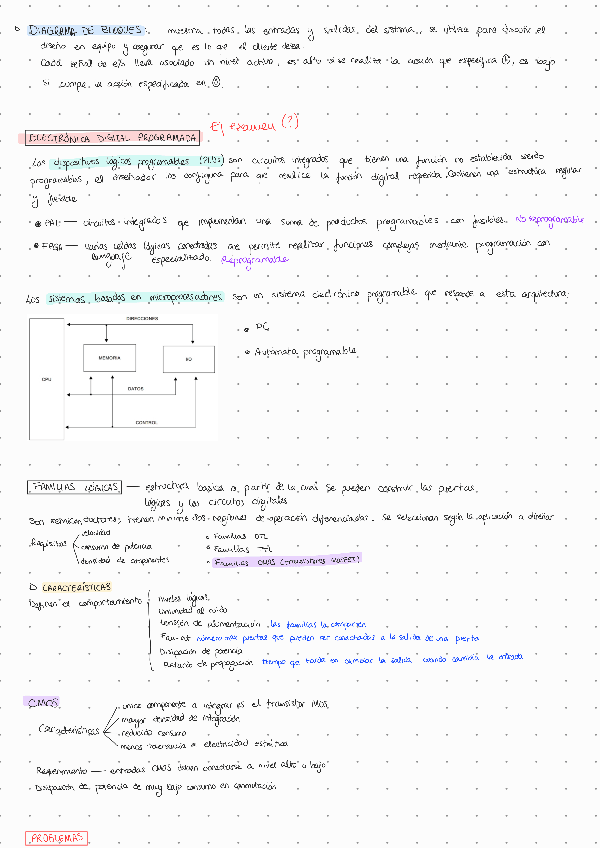 DIAGRAMA DE BLOQUES: muestra todas las entradas y salidas del sistema, se utiliza para discutir el
diseño en equipo y asegurar que es lo que el cliente desea.
Cada señal de e/s lleva asociado un nivel activo, es alto si se realiza la acción que especifica ①, es bajo
si cumple la acción especificada en ⓪.
El examen (?)
ELECTRÓNICA DIGITAL PROGRAMADA
Los dispositivos lógicos programables (PLDs) son circuitos integrados que tienen una función no establecida siendo
programables, el diseñador los configura para que realice la función digital requerida. Contienen una estructura regular
y flexible
PAL — circuitos integrados que implementan una suma de productos programables con fusibles. No reprogramable
FPGA — varias celdas lógicas conectadas que permite realizar funciones complejas mediante programación con
lenguaje especializado. Reprogramable
Los sistemas basados en microprocesadores son un sistema electrónico programable que responde a esta arquitectura:
DIRECCIONES
PC
MEMORIA
I/O
Autómata programable
CPU
DATOS
CONTROL
FAMILIAS LÓGICAS — estructura básica a partir de la cual se pueden construir las puertas
lógicas y los circuitos digitales
Son semiconductores, tienen mínimo dos regiones de operación diferenciadas. Se seleccionan según la aplicación a diseñar
Requisitos
velocidad
consumo de potencia
densidad de componentes
Familias DTL
Familias TTL
Familias CMOS (transistores MOSFET)
CARACTERÍSTICAS
Definen el comportamiento
Niveles lógicos
Inmunidad al ruido
Tensión de alimentación las familias la comparten
Fan-out número máx puertas que pueden ser conectadas a la salida de una puerta
Disipación de potencia
Retardo de propagación tiempo que tarda en cambiar la salida cuando cambió la entrada
CMOS
Características
único componente a integrar es el transistor MOS
mayor densidad de integración
reducido consumo
menos tolerancia a electricidad estática
Requerimiento — entradas CMOS deben conectarse a nivel alto o bajo
Disipación de potencia de muy bajo consumo en conmutación
PROBLEMAS